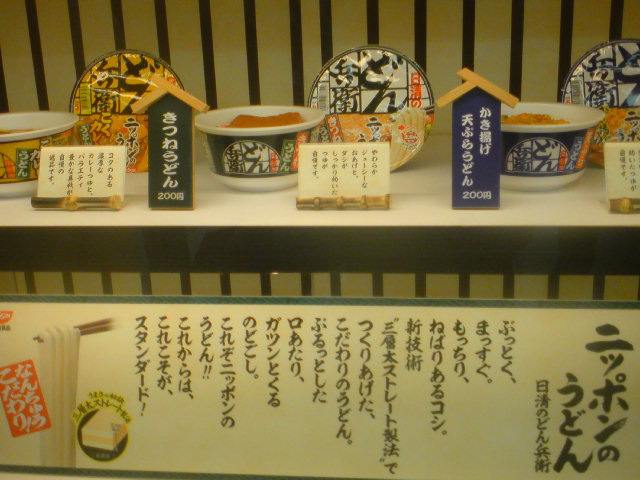 コクのある
濃厚な
カレーつゆと、
バラエティ
豊かな具材が
自慢の
逸品です。
きつねうどん
200円
やわらか
ジューシーな
おあげと、
ダシが
しっかり効いた
つゆが
自慢です。
かき揚げ
天ぷらうどん
200円
どん兵衛
ニッポンの
うどん
日清の
どん兵衛
ニッポンのうどん
日清のどん兵衛
ぶっとく、
まっすぐ。
もっちり、
ねばりあるコシ。
新技術
“三層太ストレート製法”で
つくりあげた、
こだわりのうどん。
ぷるっとした
口あたり、
ガツンとくる
のどごし。
これぞニッポンの
うどん!!
これからは、
これこそが、
スタンダード!
なんちゅう
こだわり!
三層太ストレート製法